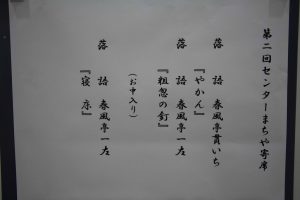 第二回センターまちや寄席
落語 春風亭貫いち
『やかん』
落語 春風亭一左
『粗忽の釘』
(お中入り)
落語 春風亭一左
『寝床』